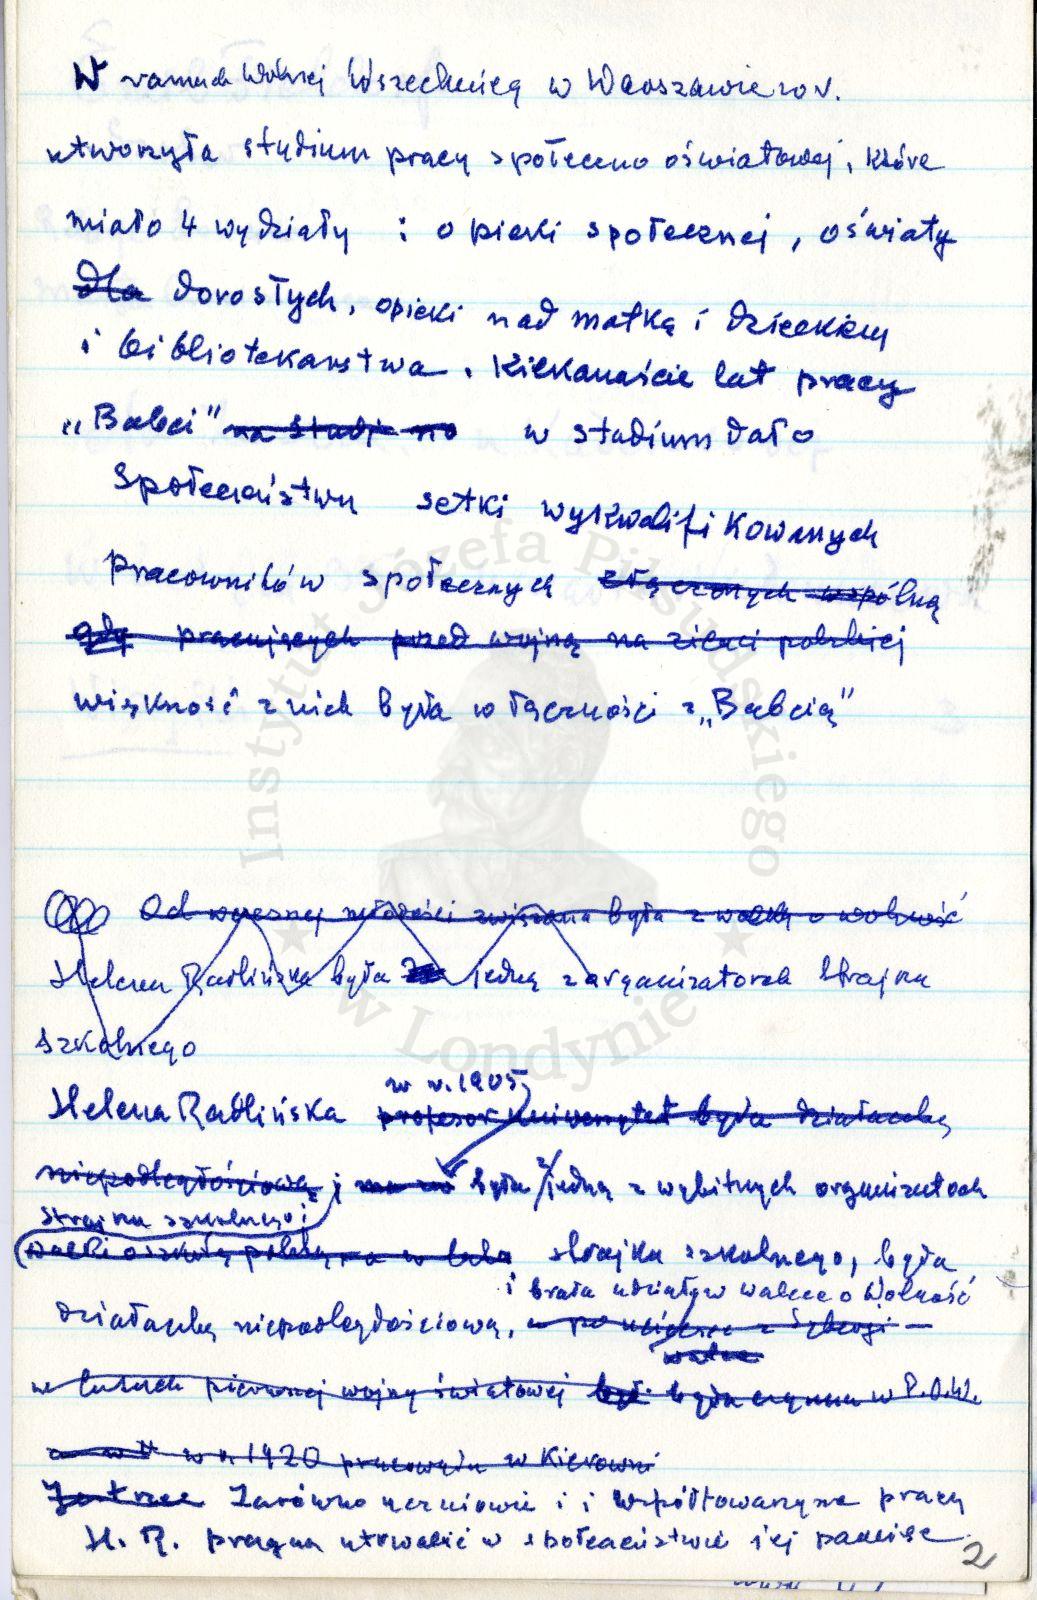 W ramach Wolnej Wszechnicy w Warszawie
utworzyła studium pracy społeczno oświatowej, które
miało 4 wydziały : opieki społecznej, oświaty
dla dorosłych, opieki nad matką i dzieckiem
i bibliotekarstwa. Kilkanaście lat pracy
„Babci" na studi w studium dało
Społeczeństwu setki wykwalifikowanych
pracowników społecznych złączonych wspólną
gdy pracujących przed wojną na ziemi polskiej
większość z nich była w łączności z „Babcią"
Od wczesnej młodości związana była z walką o wolność
Helena Radlińska była jedną z organizatorek strajku
szkolnego
w r. 1905
Helena Radlińska profesor uniwersytet była działaczką
niepodległościową i była jedną z wybitnych organizatorek
strajku szkolnego i
walki o szkołę polską strajku szkolnego, była
i brała udział w walce o Wolność
działaczką niepodległościową, Syberji
walce
w latach pierwszej wojny światowej była czynna w P.O.W.
w r. 1920 pracowała w Kierowni
Zarówno uczniowie i i współtowarzysze pracy
H. R. pragną utrwalić w społeczeństwie jej pamięć
2
Instytut Józefa Piłsudskiego
w Londynie